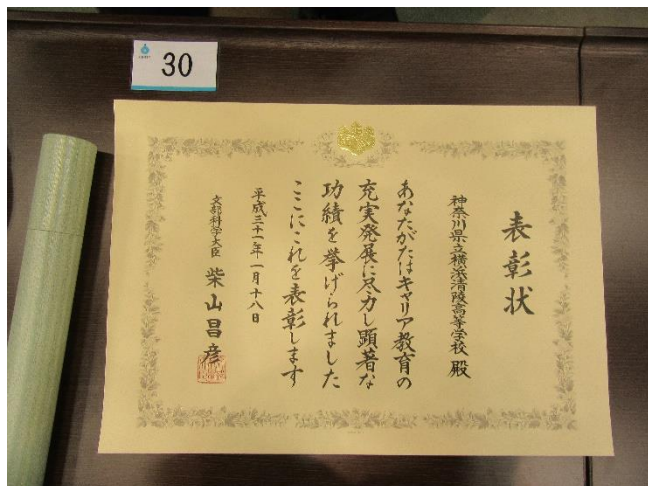 30
表彰状
神奈川県立横浜清陵高等学校 殿
あなたがたはキャリア教育の
充実発展に尽力し顕著な
功績を挙げられました
ここにこれを表彰します
平成三十一年一月十八日
文部科学大臣 柴山昌彦